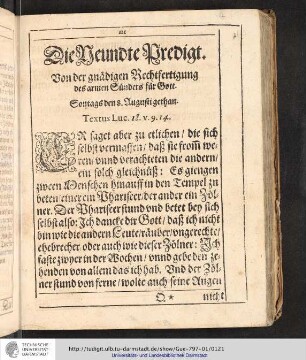 Die Neundte Predigt.
Von der gnådigen Rechtfertigung
des armen Sünders für Gott.
Sontags den 8. Augusti gethan.
Textus Luc. 18. v. 9. 14.
ER saget aber zu etlichen / die sich
selbst vermassen / daß sie from̃ we-
ren / vnnd verachteten die andern /
ein solch gleichnüß: Es giengen
zween Menschen hinauff in den Tempel zu
beten / einer ein Phariseer / der ander ein Zöl-
ner. Der Phariseer stund vnd betet bey sich
selbst also: Ich dancke dir Gott / daß ich nicht
bin wie die andern Leute / räuber / vngerechte /
ehebrecher oder auch wie dieser Zölner: Ich
faste zwyer in der Wochen / vnnd gebe den ze-
henden von allem das ich hab. Vnd der Zöl-
ner stund von ferne / wolte auch seine Augen
nicht
TECHNISCHE
UNIVERSITÄT
DARMSTADT
http://tudigit.ulb.tu-darmstadt.de/show/Gue-797-01/0121
Universitäts- und Landesbibliothek Darmstadt